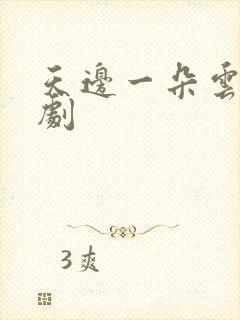 天邊一朵雲
劇
3爽